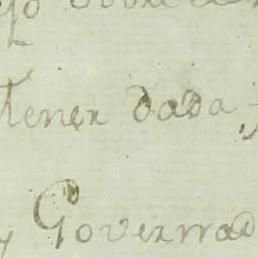 tener dada
y Governad